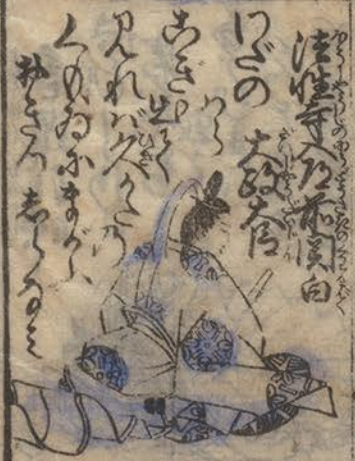 法性寺入道前関白
太政大臣
わだの
はら
こぎ出て
見れば久かたの
くもゐにまがふ
おきつしらなみ